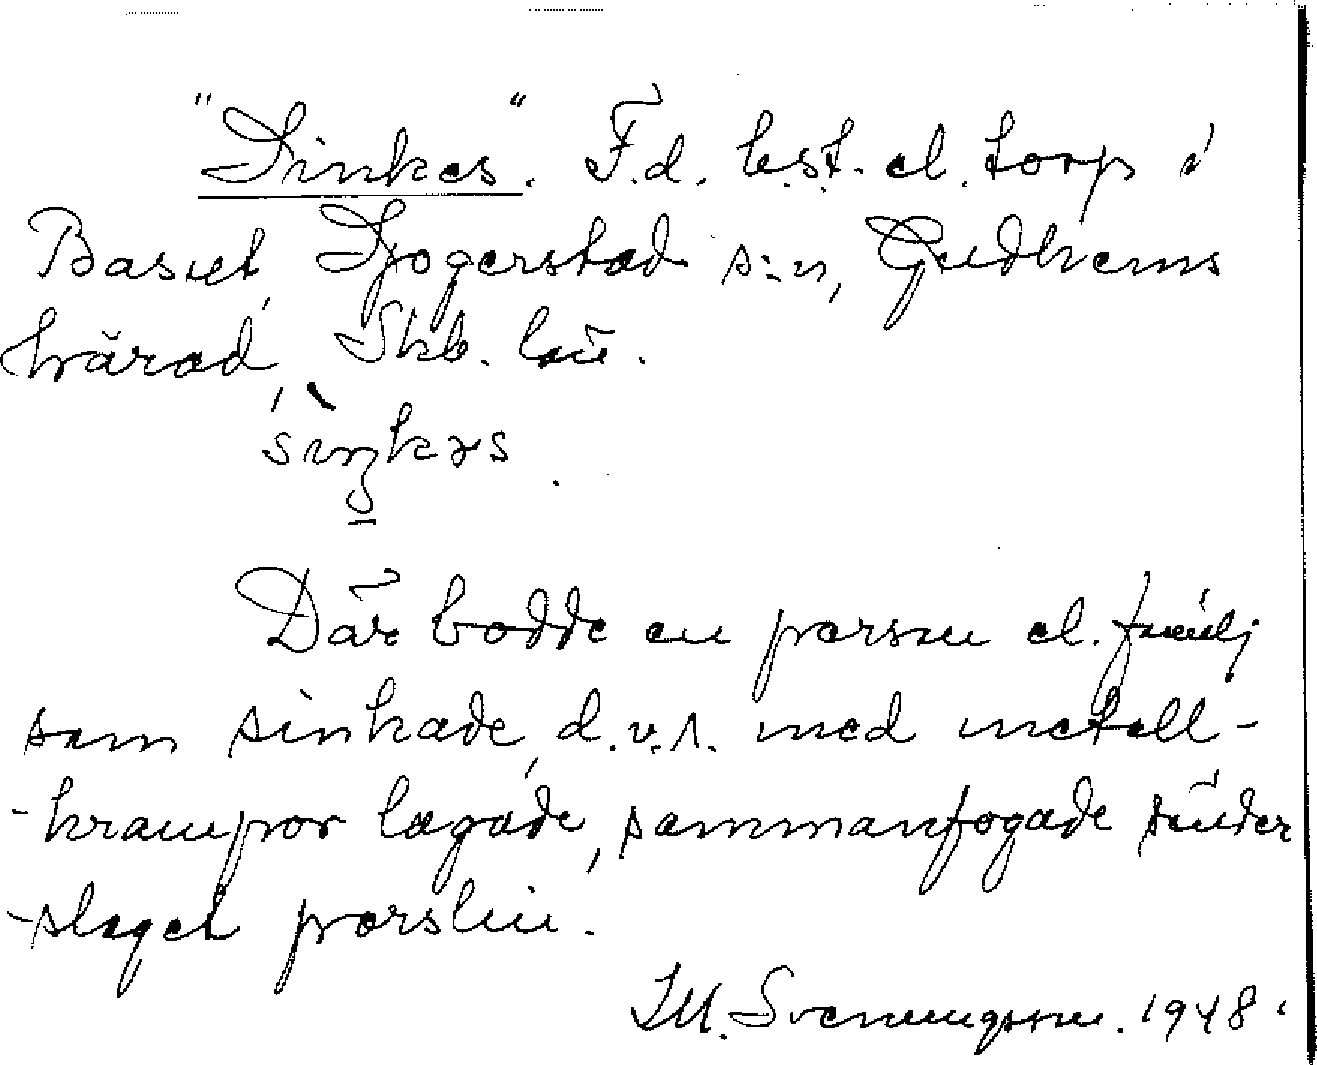 "Sinkes". F.d. b.st. el. torp i
Baset, Sjogerstad s:n, Gudhems
härad, Skb. län.
sìŋkəs.
Där bodde en person el. familj
som sinkade, d.v.s. med metall-
-krampor lagade, sammanfogade sönder
-slaget porslin.
I.M. Svenungsson. 1948.